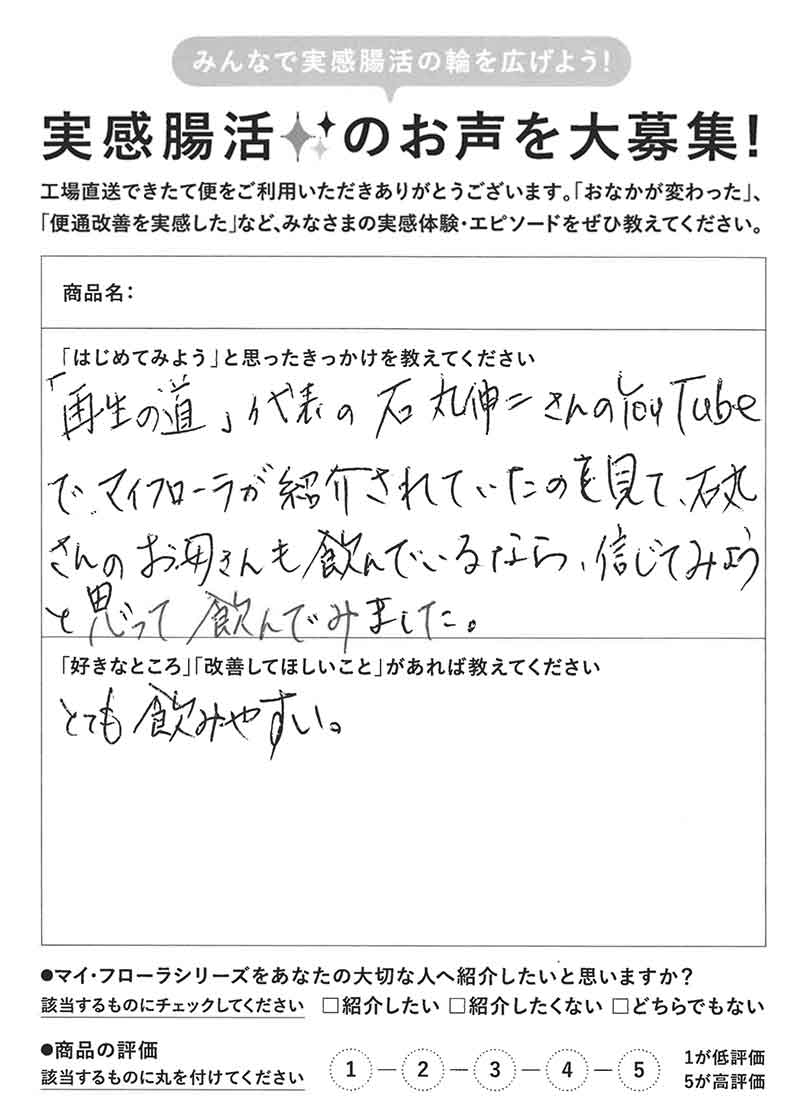 みんなで実感腸活の輪を広げよう!
実感腸活のお声を大募集!
工場直送できたて便をご利用いただきありがとうございます。「おなかが変わった」、
「便通改善を実感した」など、みなさまの実感体験・エピソードをぜひ教えてください。
商品名:
「はじめてみよう」と思ったきっかけを教えてください
「再生の道」代表の石丸伸二さんのYouTube
で、マイフローラが紹介されていたのを見て、石丸
さんのお母さんも飲んでいるなら、信じてみよう
と思って飲んでみました。
「好きなところ」「改善してほしいこと」があれば教えてください
とても飲みやすい。
●マイ・フローラシリーズをあなたの大切な人へ紹介したいと思いますか?
該当するものにチェックしてください □紹介したい □紹介したくない □どちらでもない
●商品の評価
該当するものに丸を付けてください
1 — 2 — 3 — 4 — 5
1が低評価
5が高評価